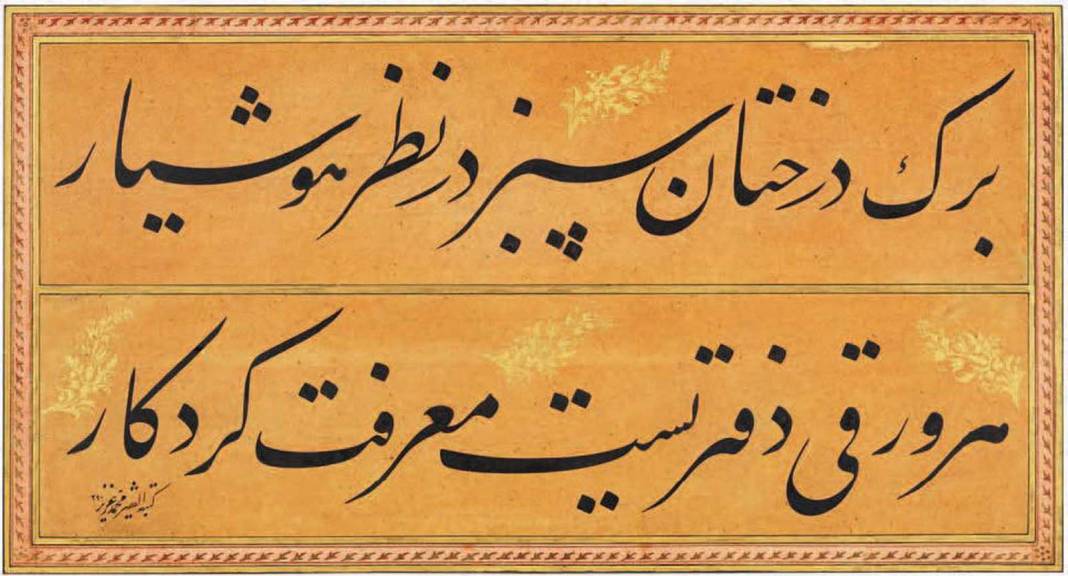 برک درختان سبز در نظر هوشیار
هر ورقی دفتریست معرفت کردکار
کتبه الفقیر محمد عزیز